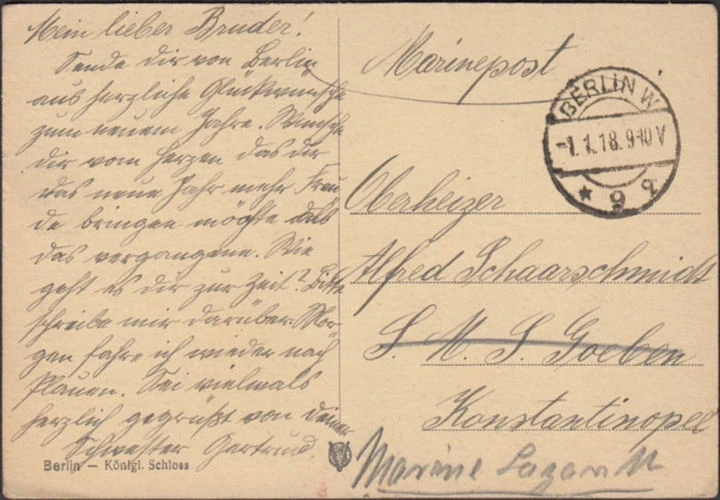 Mein lieber Bruder!
Sende dir von Berlin
aus herzliche Glückwünsche
zum neuem Jahre. Wünsche
dir vom Herzen das dir
das neue Jahr mehr Freu
de bringen möchte als
das vergangene. Wie
geht es dir zur Zeit? Bitte
schreibe mir darüber. Mor
gen fahre ich wieder nach
Plauen. Sei vielmals
herzlich gegrüßt von deiner
Schwester Gertrud.
Berlin — Königl. Schloss
Marinepost
BERLIN W
-1.1.18.9-10V
* 9 
Oberheizer
Alfred Schaarschmidt
S. M. S. Goeben
Konstantinopel
Marine Lazarett